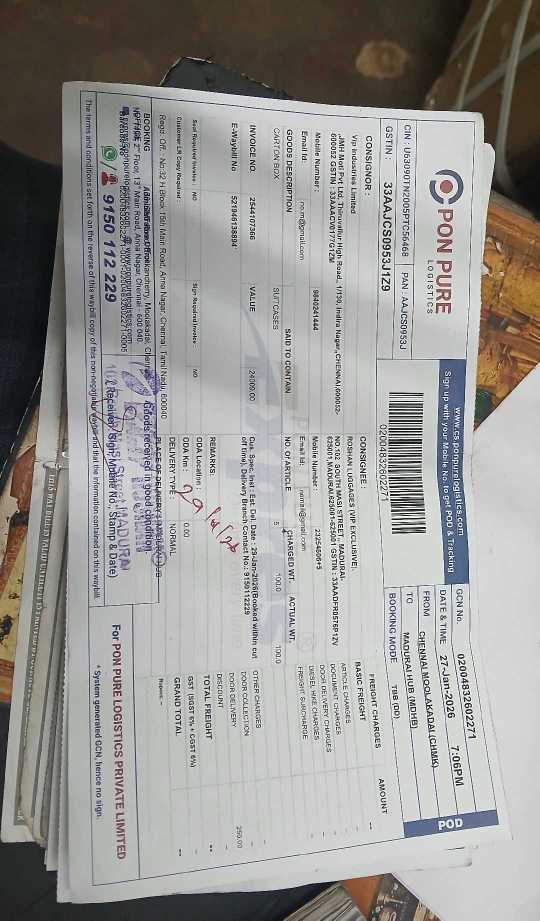 PON PURE
LOGISTICS
www.cs.ponpurelogistics.com
Sign up with your Mobile No. to get POD & Tracking
GCN No. 02004832602271
DATE & TIME 27-Jan-2026 7:06PM
FROM CHENNAI MOOLAKADAI (CHMK)
TO MADURAI HUB (MDHB)
BOOKING MODE TBB (DD)
POD
02004832602271
CIN : U63090TN2005PTC56468 PAN : AAJCS0953J
GSTIN : 33AAJCS0953J1Z9
CONSIGNOR :
Vip Industries Limited
,JMH Moti Pvt Ltd, Thiruvallur High Road,, 1/130, Indira Nagar,,CHENNAI,600052-
600052 GSTIN : 33AAACV0177G1ZM
Mobile Number : 9840241444
Email Id: no.m@gmail.com
CONSIGNEE :
ROSHAN LUGGAGES (VIP EXCLUSIVE).
NO.102 SOUTH MASI STREET,, MADURAI-
625001,MADURAI,625001-625001 GSTIN :
Mobile Number :
Email Id:
GOODS DESCRIPTION SAID TO CONTAIN NO. OF ARTICLE CHARGED WT. ACTUAL WT.
CARTON BOX SUITCASES 5 100.0 100.0
INVOICE NO. 2544107366 VALUE 24009.00
E-Waybill No 521946138894
Cust. Spec. Inst : Est. Del. Date : 29-Jan-2026(Booked within cut
off time), Delivery Branch Contact No.: 9150112229
REMARKS:
Seal Required Invoice : NO Sign Required Invoice : NO
Customer LR Copy Required :
ODA Location :
ODA Km : 0.00
DELIVERY TYPE : NORMAL
FREIGHT CHARGES AMOUNT
BASIC FREIGHT --
ARTICLE CHARGES --
DOCUMENT CHARGES --
DOOR DELIVERY CHARGES --
DIESEL HIKE CHARGES --
FREIGHT SURCHARGE --
OTHER CHARGES --
DOOR COLLECTION 250.00
DOOR DELIVERY --
DISCOUNT --
TOTAL FREIGHT --
GST (SGST 6% + CGST 6%) --
GRAND TOTAL --
Rupees --
Regd. Off. : No:32 H Block 15th Main Road, Anna Nagar, Chennai, Tamil Nadu, 600040
BOOKING
9150 112 229
Goods received in good condition
(Receiver Sign, Mobile No., Stamp & Date)
MADURAI
For PON PURE LOGISTICS PRIVATE LIMITED
* System generated GCN, hence no sign.
The terms and conditions set forth on the reverse of this waybill copy of this non-negotiable waybill and that the information contained on this waybill.